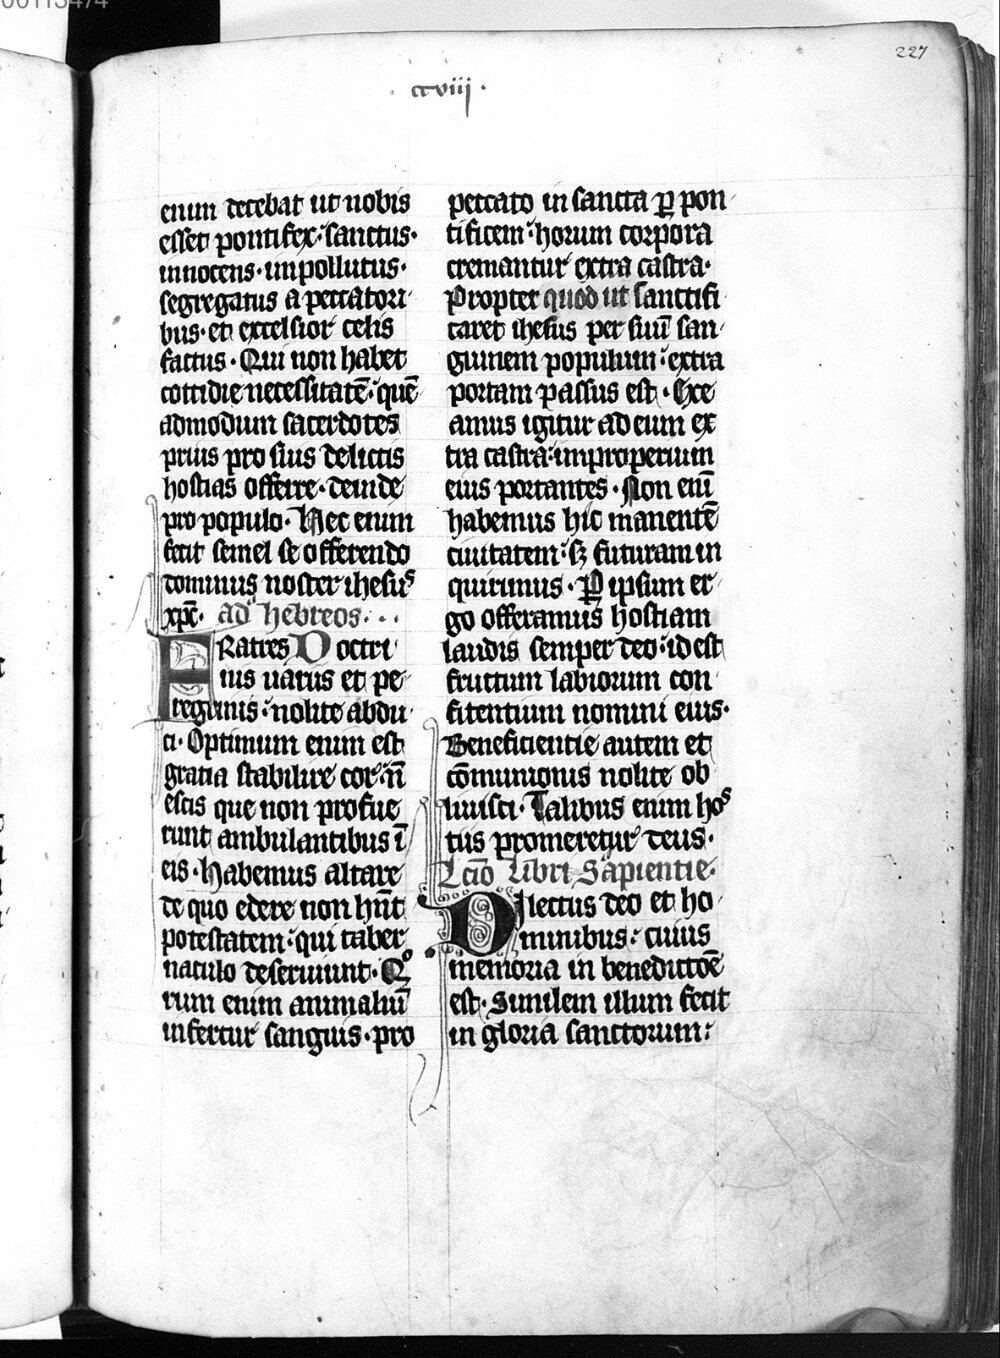 00113474
227
ccviii
enim decebat ut nobis
esset pontifex· sanctus·
innocens· impollutus·
segregatus a peccatori
bus· et excelsior celis
factus· Qui non habet
cottidie necessitatē· quē
admodum sacerdotes
prius pro suis delictis
hostias offerre· deinde
pro populo· Hec enim
fecit semel se offerendo
dominus noster ihesus
xp̄c· ad hebreos···
FRatres Doctri
nis uariis et pe
regrinis· nolite abdu
ci· Optimum enim est
gratia stabilire cor· n̄
escis que non profue
runt ambulantibus ī
eis· Habemus altare
de quo edere non hn̄t
potestatem· qui taber
naculo deseruiunt· Qo
rum enim animaliū
infertur sanguis· pro
peccato in sancta ꝑ pon
tificem· horum corpora
cremantur extra castra·
Propter quod ut sanctifi
caret ihesus per suū san
guinem populum· extra
portam passus est· Exe
amus igitur ad eum ex
tra castra· improperium
eius portantes· Non enī
habemus hic manentē
ciuitatem· sꝫ futuram in
quirimus· Ꝑ ipsum er
go offeramus hostiam
laudis semper deo· id est
fructum labiorum con
fitentium nomini eius·
Beneficientie autem et
cōmunionis nolite ob
liuisci· Talibus enim hos
tiis promeretur deus·
Lcīo Libri Sapientie·
Dilectus deo et ho
minibus· cuius
memoria in benedictōe
est· Similem illum fecit
in gloria sanctorum·